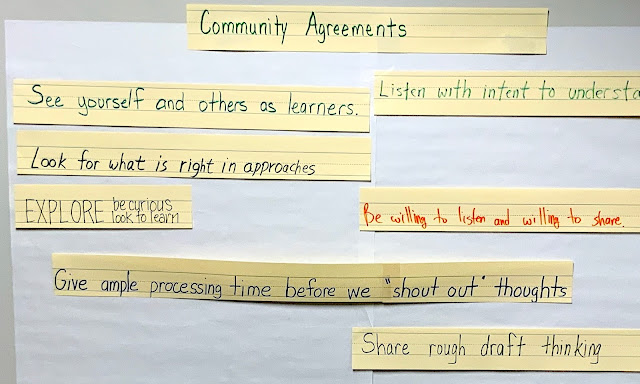 Community Agreements
See yourself and others as learners.
Listen with intent to understa
Look for what is right in approaches
EXPLORE be curious
look to learn
Be willing to listen and willing to share.
Give ample processing time before we "shout out" thoughts
Share rough draft thinking